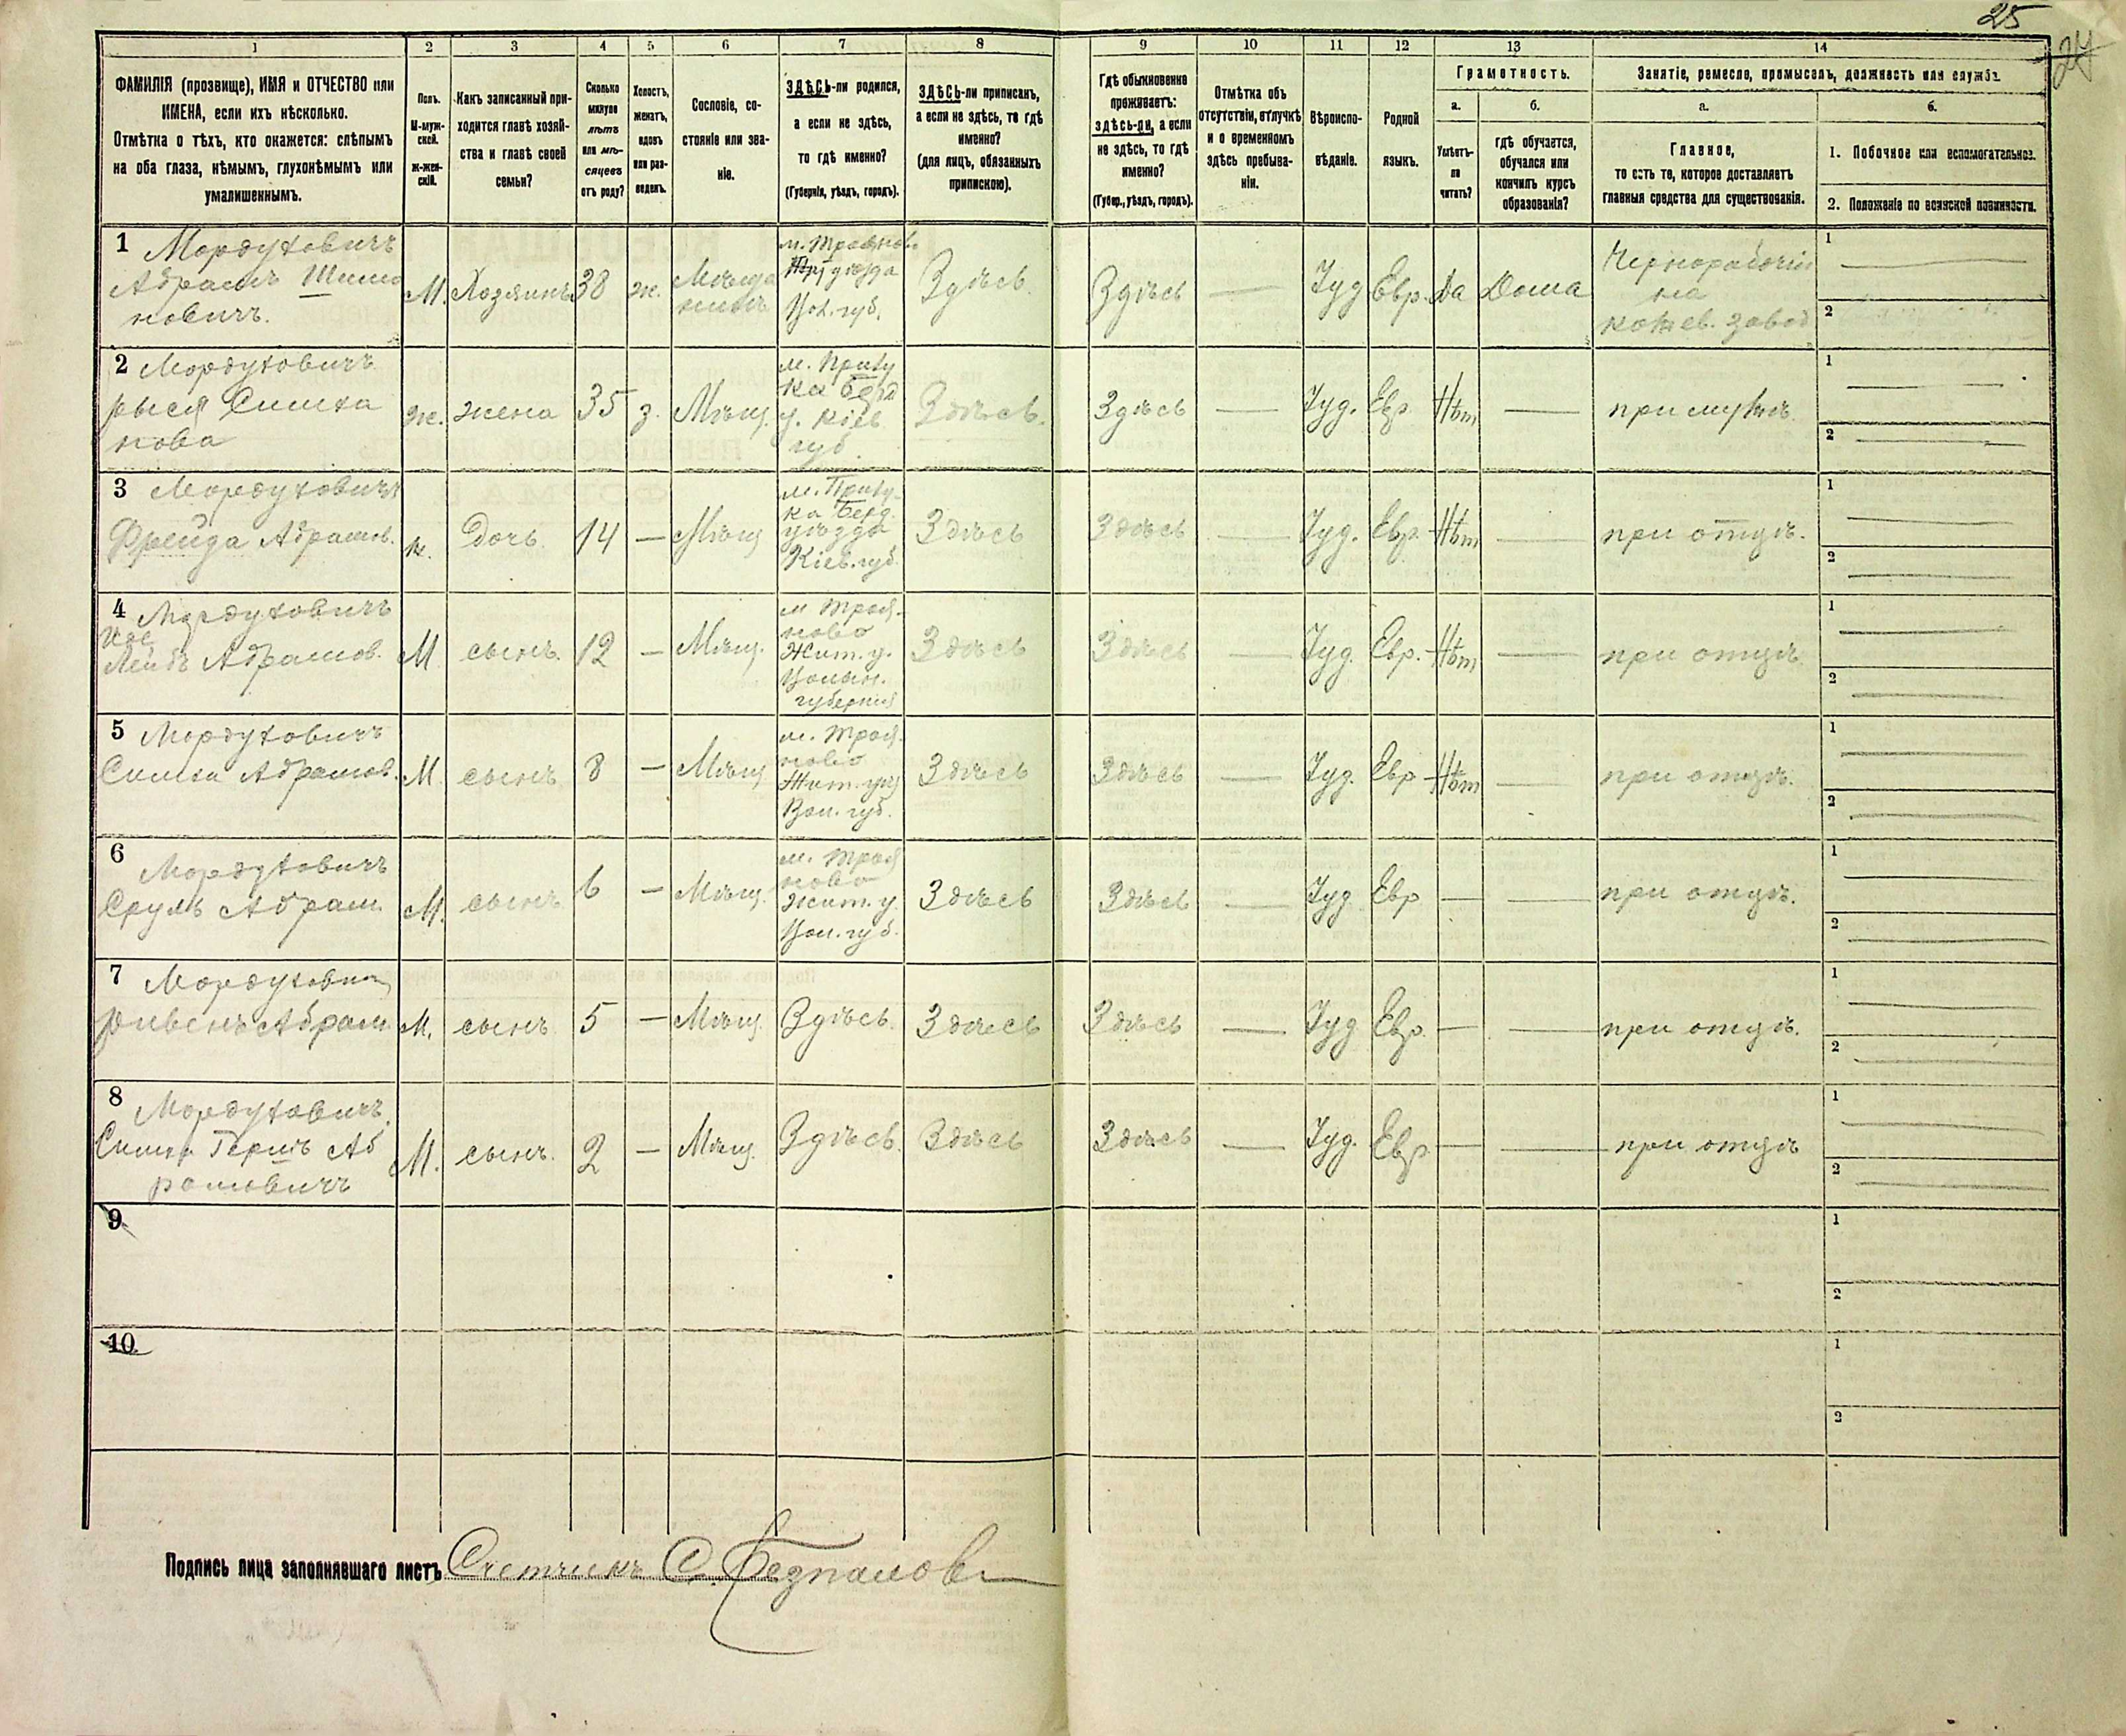 25
27
1 2 3 4 5 6 7 8 9 10 11 12 13 14
ФАМИЛІЯ (прозвище), ИМЯ и ОТЧЕСТВО или
ИМЕНА, если ихъ нѣсколько.
Отмѣтка о тѣхъ, кто окажется: слѣпымъ
на оба глаза, нѣмымъ, глухонѣмымъ или
умалишеннымъ.
Полъ.
М-муж-
ской.
ж-жен-
скій.
Какъ записанный при-
ходится главѣ хозяй-
ства и главѣ своей
семьи?
Сколько
минуло
лѣтъ
или мѣ-
сяцевъ
отъ роду?
Холостъ,
женатъ,
вдовъ
или раз-
веденъ.
Сословіе, со-
стояніе или зва-
ніе.
ЗДѢСЬ-ли родился,
а если не здѣсь,
то гдѣ именно?
(Губернія, уѣздъ, городъ).
ЗДѢСЬ-ли приписанъ,
а если не здѣсь, то гдѣ
именно?
(для лицъ, обязанныхъ
припискою).
Гдѣ обыкновенно
проживаетъ:
здѣсь-ли, а если
не здѣсь, то гдѣ
именно?
(Губер., уѣздъ, городъ).
Отмѣтка объ
отсутствіи, отлучкѣ
и о временномъ
здѣсь пребыва-
ніи.
Вѣроиспо-
вѣданіе.
Родной
языкъ.
Грамотность.
а.
Умѣетъ-
ли
читать?
б.
гдѣ обучается,
обучался или
кончилъ курсъ
образованія?
Занятіе, ремесло, промыселъ, должность или служба.
а.
Главное,
то есть то, которое доставляетъ
главныя средства для существованія.
б.
1. Побочное или вспомогательное.
2. Положеніе по воинской повинности.
1 Мордуховичъ
Абрамъ Шимо
новичъ.
М. Хозяинъ 38 ж.
м. Трояновъ
уѣзда
Вол. губ.
Здѣсь. Здѣсь — Іуд Евр. Да Дома
Чернорабочій
на
кожев. завод
1
2
2 Мордуховичъ
Рыся Симха
нова
ж. жена 35 з. Мѣщ.
м. Прилу
ка Берд
у. Кіев
губ.
Здѣсь. Здѣсь — Іуд. Евр. Нѣт — при мужѣ.
1
2
3 Мордуховичъ
Фрейда Абрамов.
ж. Дочь 14 — Мѣщ
м. Прилу-
ка Берд.
уѣзда
Кіев. губ.
Здѣсь Здѣсь — Іуд. Евр. Нѣт — при отцѣ.
1
2
4 Мордуховичъ
Лейбъ Абрамов.
М сынъ. 12 — Мѣщ.
м Троя-
ново
Жит. у.
Волын.
губернія
Здѣсь Здѣсь — Іуд. Евр. Нѣт — при отцѣ.
1
2
5 Мордуховичъ
Симха Абрамов.
М. сынъ 8 — Мѣщ
м. Троя-
ново
Жит. уѣз
Вол. губ.
Здѣсь Здѣсь — Іуд. Евр Нѣт — при отцѣ.
1
2
6 Мордуховичъ
Сруль Абрам
М. сынъ 6 — Мѣщ.
м. Троя
ново
Жит. у.
Вол. губ.
Здѣсь Здѣсь — Іуд Евр — — при отцѣ.
1
2
7 Мордухович
Рувенъ Абрам
М. сынъ 5 — Мѣщ. Здѣсь. Здѣсь Здѣсь — Іуд Евр. — — при отцѣ.
1
2
8 Мордуховичъ
Симха Гершъ Аб
рамовичъ
М. сынъ. 2 — Мѣщ. Здѣсь. Здѣсь Здѣсь — Іуд. Евр — — при отцѣ
1
2
9
1
2
10
1
2
Подпись лица заполнявшаго листъ Счетчикъ С.